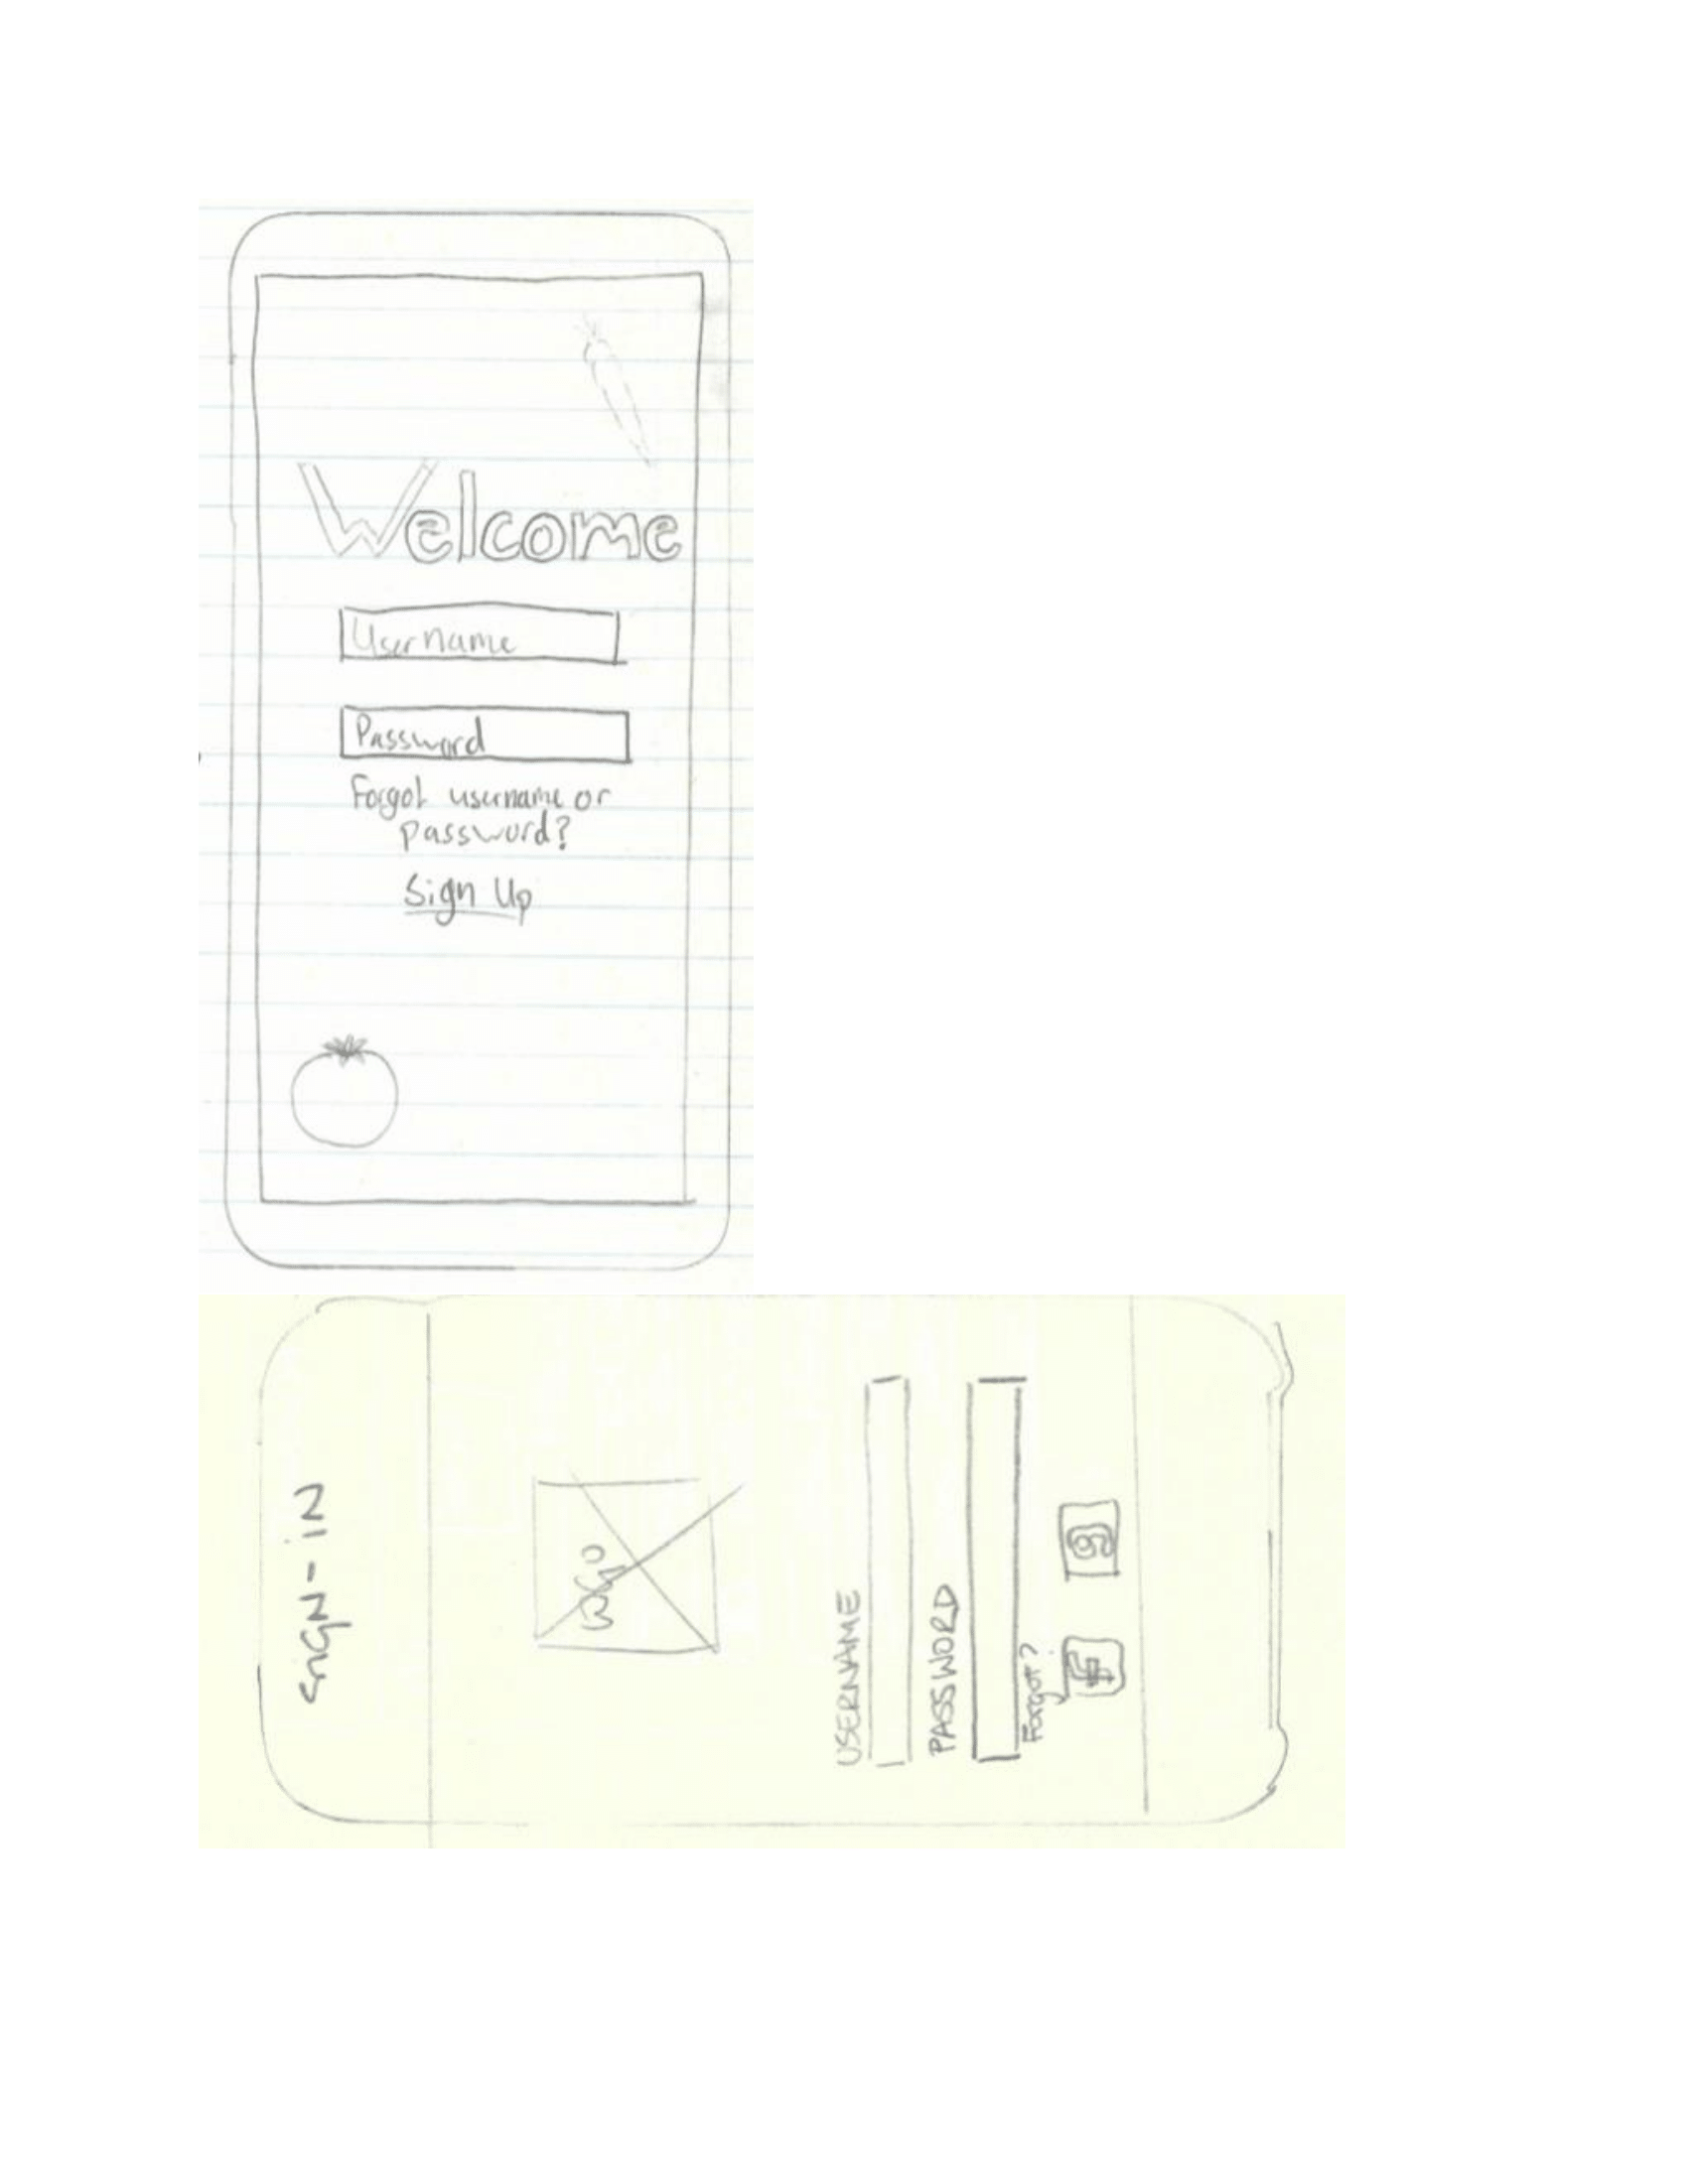 Welcome
Username
Password
Forgot username or
password?
Sign Up
SIGN-IN
LOGO
USERNAME
PASSWORD
Forgot?
f
g